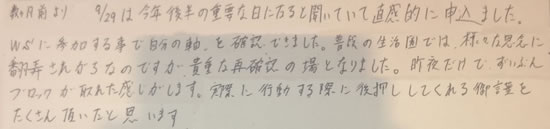 数ヶ月前より 9/29は今年後半の重要な日になると聞いていて直感的に申込ました。
WSに参加する事で自分の軸、を確認できました。普段の生活圏では、様々な思念に
翻弄されがちなのですが貴重な再確認の場となりました。昨夜だけで、ずいぶん
ブロックが取れた感じがします。実際に行動する際に後押ししてくれる御言葉を
たくさん頂いたと思います